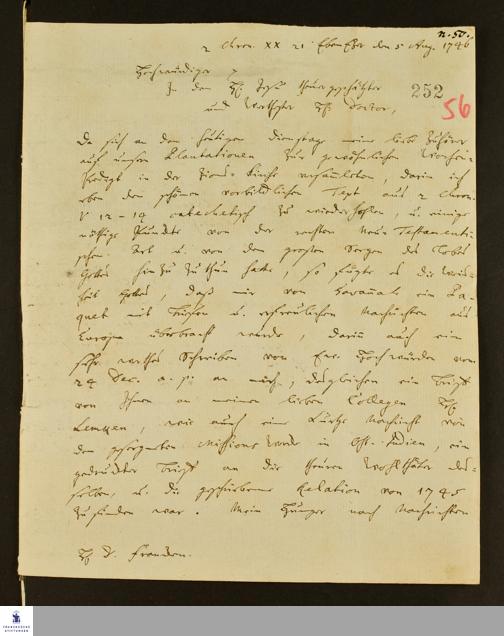 n. 50.
2 Chron. XX 21 Eben Ezer den 5 Aug. 1746
Hochwürdiger
In dem H. Jesu theuer geschätzter
252
56
und Werthester H. Doctor,
Da sich an dem heutigen Dienstage meine liebe Zuhörer
auf unsern Plantationen zur gewöhnlichen Wochen-
Predigt in der Zions-Kirche versamleten, darin ich
eben den schönen vorbildlichen Text aus 2 Chron.
V 12-14 catechetisch zu wiederholen, u. einige
nöthige Puncte von der rechten Neu-Testamenti-
schen Art u. von dem großen Segen des Lobes
Gottes hinzu zu thun hatte, so fügte es die Weis-
heit Gottes, daß mir von Savannah ein Pa-
quet mit Briefen u. erfreulichen Nachrichten aus
Europa überbracht wurde, darin auch ein
sehr werthes Schreiben von Ew. Hochwürden vom
24 Dec. a. p. an mich, desgleichen ein Brief
von Ihnen an meinen lieben Collegen H.
Lemken, wie auch eine kurtze Nachricht von
dem gesegneten Missions Werke in Ost-Indien, ein
gedruckter Brief an die theuren Wohlthäter des-
selben, u. die geschriebene Relation von 1745
zu finden war. Mein Hunger nach Nachrichten
H. D. Francken.
FRANCKESCHE STIFTUNGEN